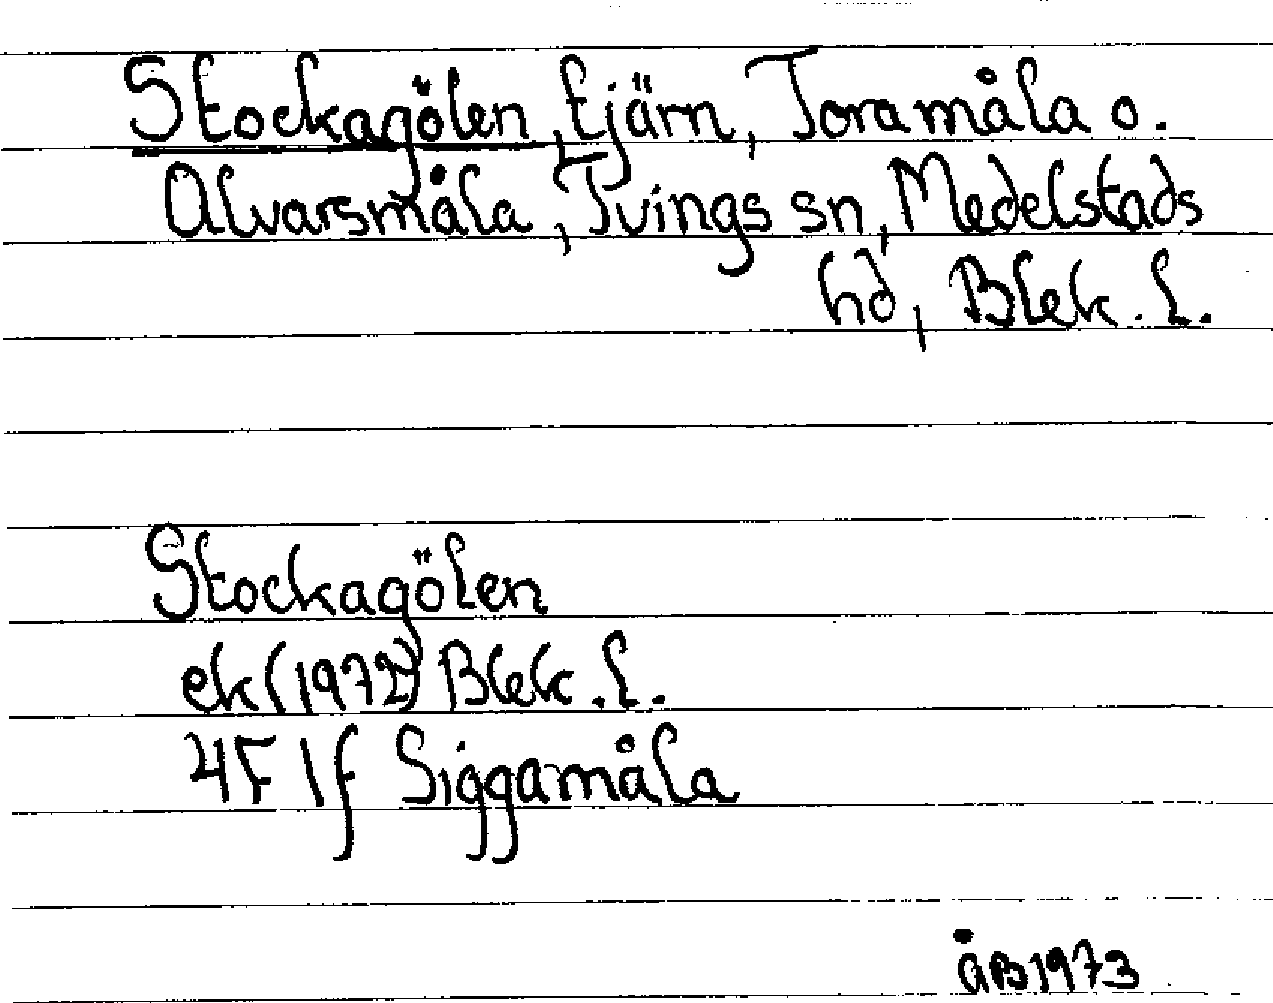 Stockagölen, tjärn, Toramåla o.
Alvarsmåla, Tvings sn, Medelstads
hd, Blek. l.
Stockagölen
ek (1972) Blek. l.
4F 1f Siggamåla
ÅB 1973